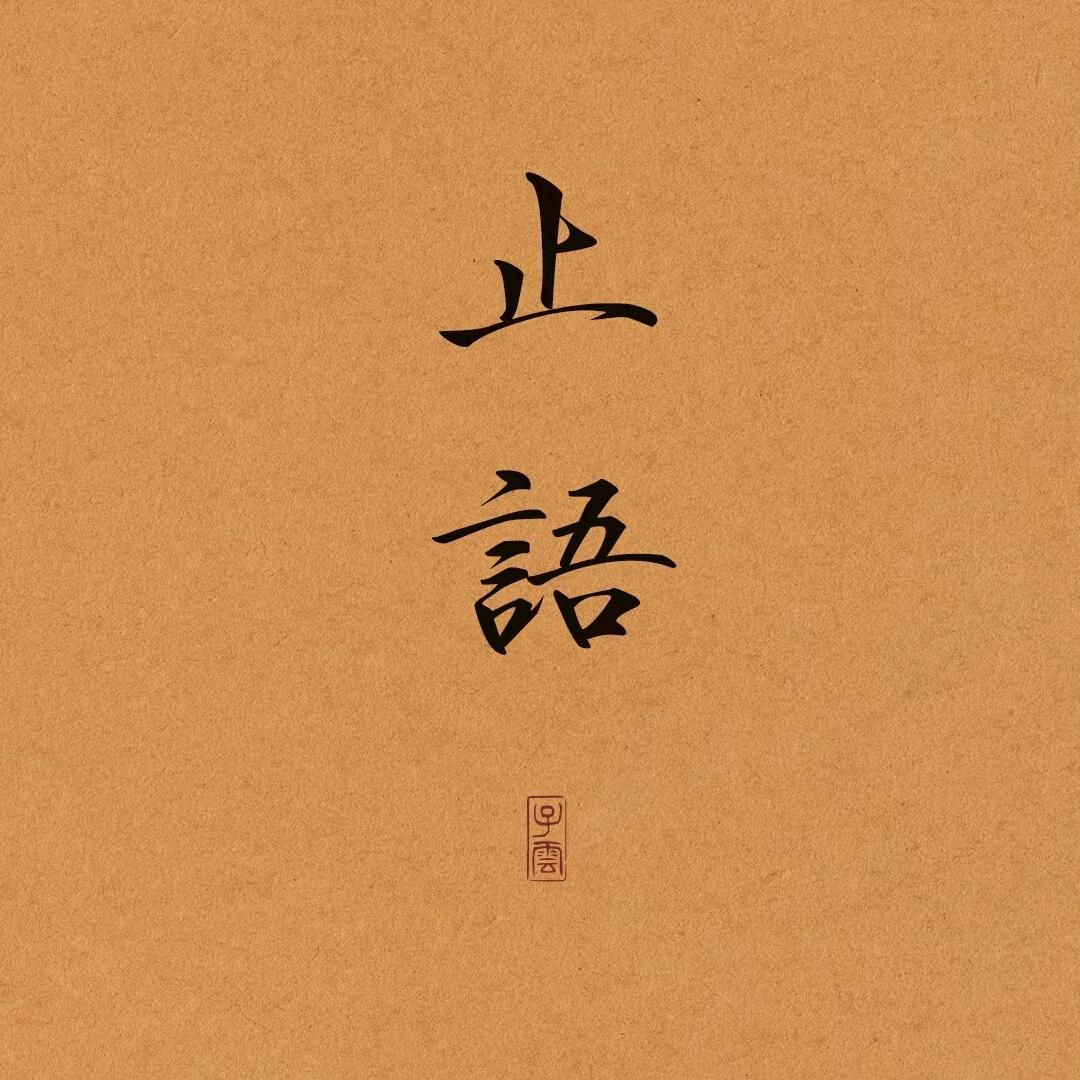 止語
子雲